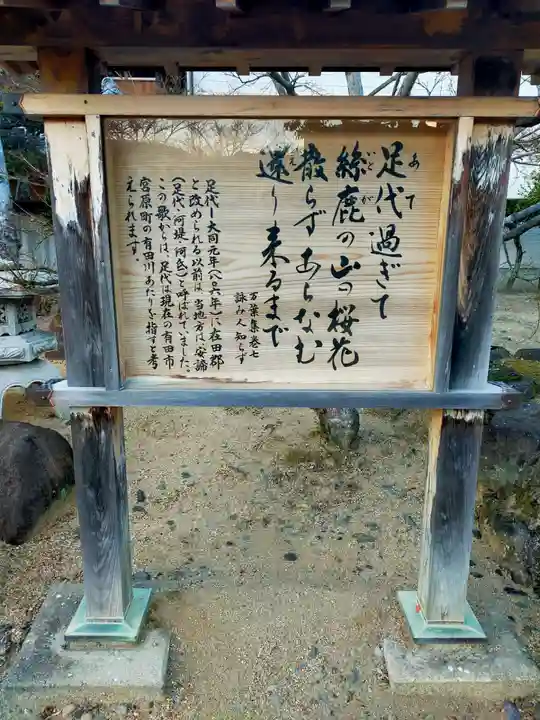 足代過ぎて
あて
絲鹿の山の桜花
いとか
散らずあらなむ
還り来るまで
え
万葉集巻七
詠み人知らず
足代ー大同元年(八〇六年)に在田郡
と改められる以前は、当地方は、安諦
(足代、阿堤、阿氐)と呼ばれていました。
この歌からは、足代は現在の有田市
宮原町の有田川あたりを指すと考
えられます。